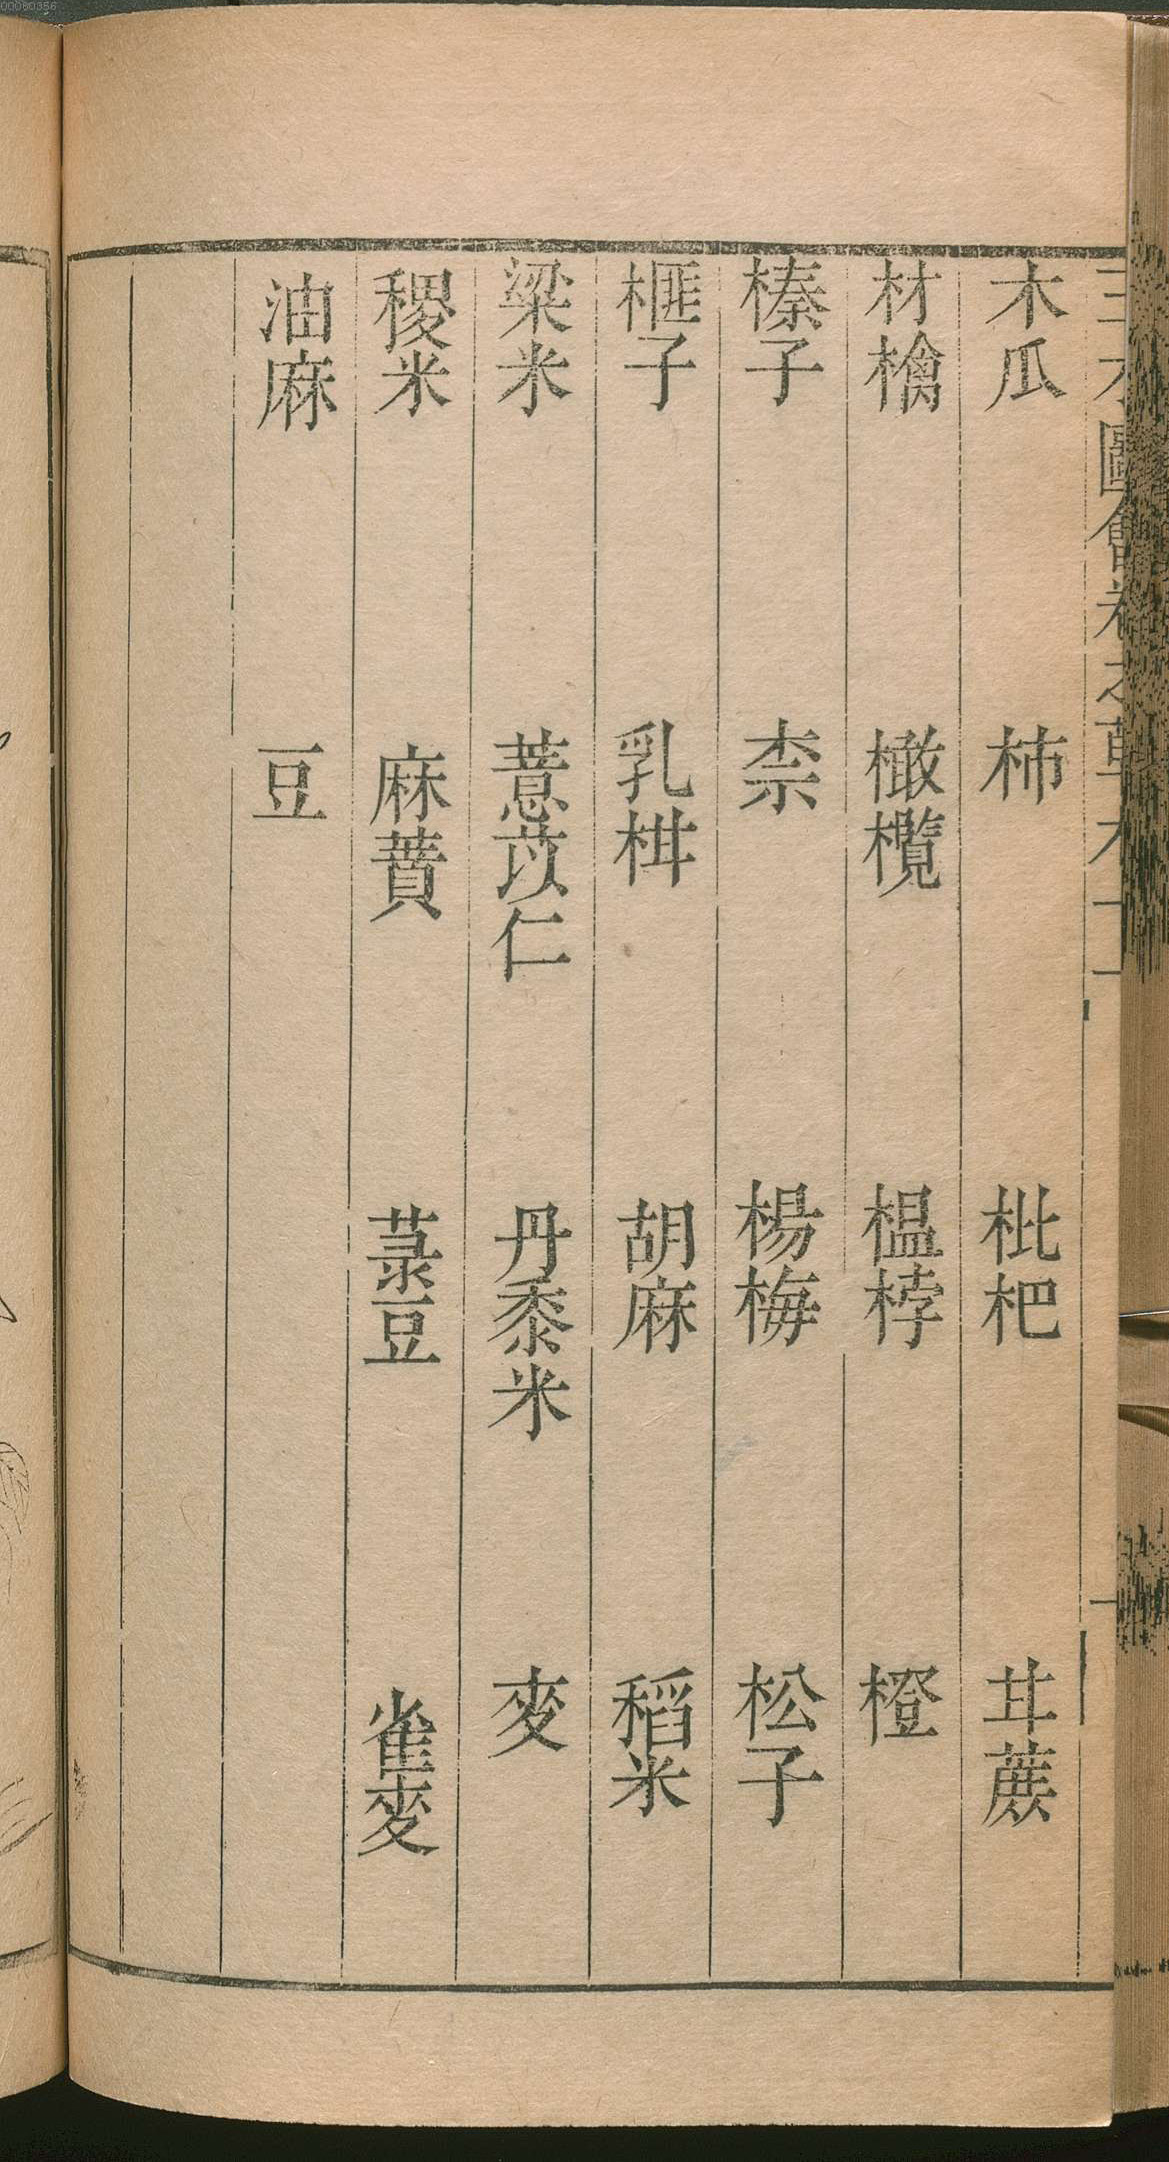 三才圖會卷之草木十一
木瓜 柿 枇杷 甘蔗
材檎 橄欖 榲桲 橙
榛子 柰 楊梅 松子
榧子 乳柑 胡麻 稻米
粱米 薏苡仁 丹黍米 麥
稷米 麻蕡 菉豆 雀麥
油麻 豆
00080356